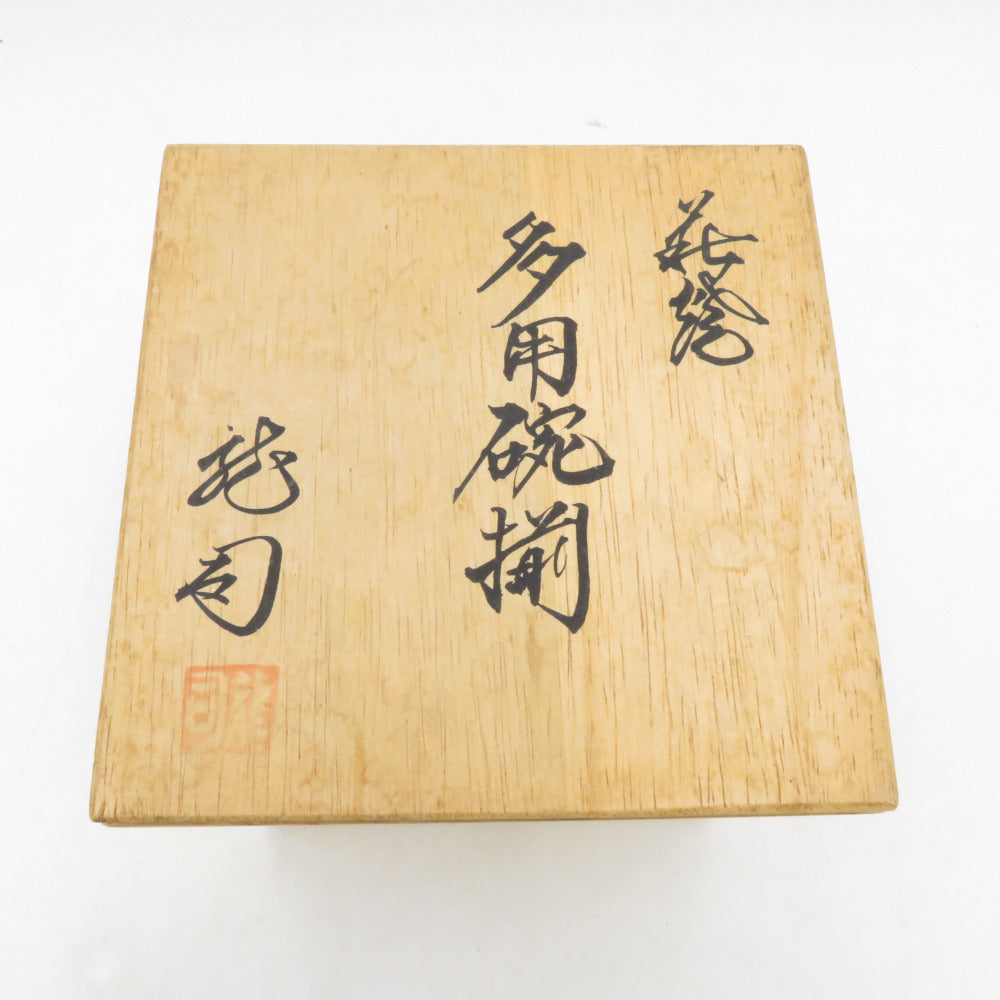 萩焼
多用碗揃
龍司
龍司